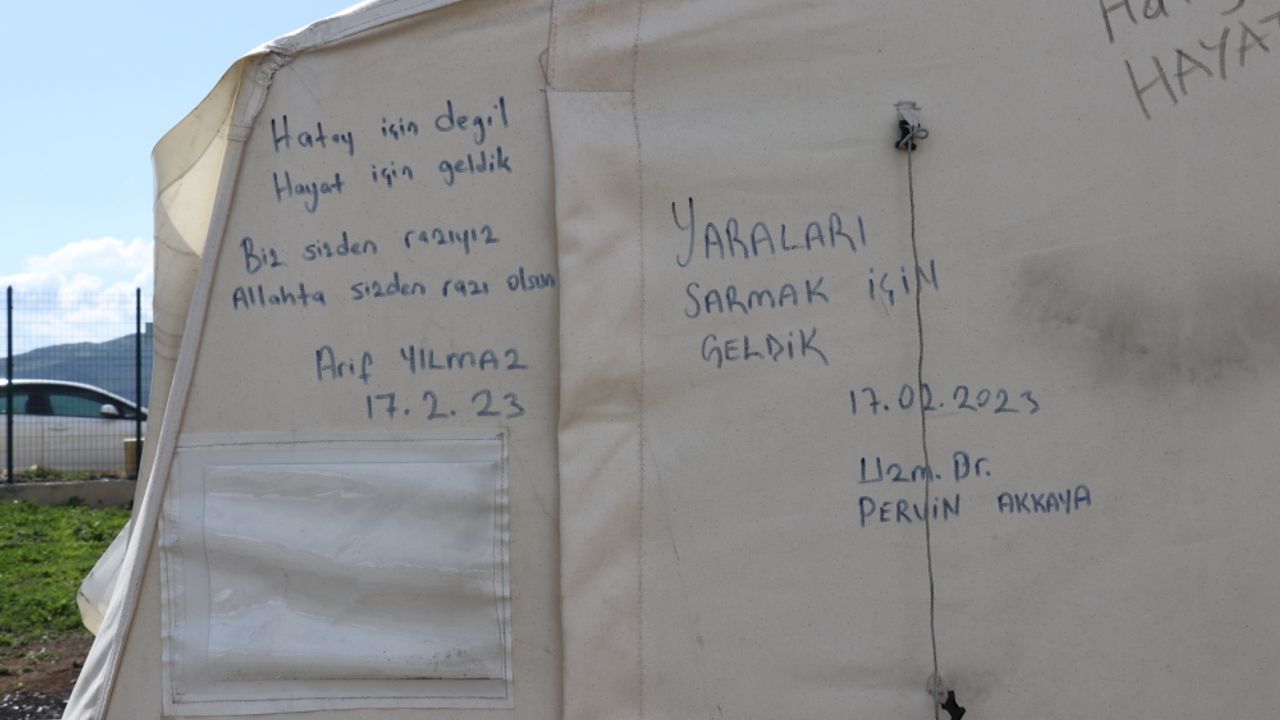 Hatay için degil
Hayat için geldik
Biz sizden razıyız
Allahta sizden razı olsun
Arif YILMAZ
17.2.23
YARALARI
SARMAK İÇİN
GELDİK
17.02.2023
Uzm. Dr.
PERVİN AKKAYA